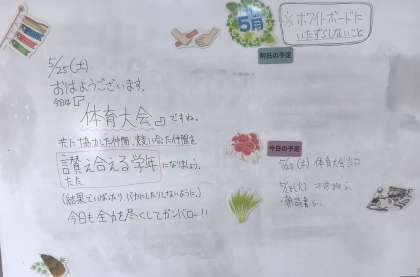 5月
※ホワイトボードに
いたずらしないこと
明日の予定
5/25(土)
おはようございます。
今日は
体育大会 ですね。
共に協力した仲間、競い合った仲間を
讃え合える学年になりましょう。
たた
(結果でいばったり、バカにしたりしないように。)
今日も全力を尽くしてガンバロー!!
今日の予定
5/25(土) 体育大会